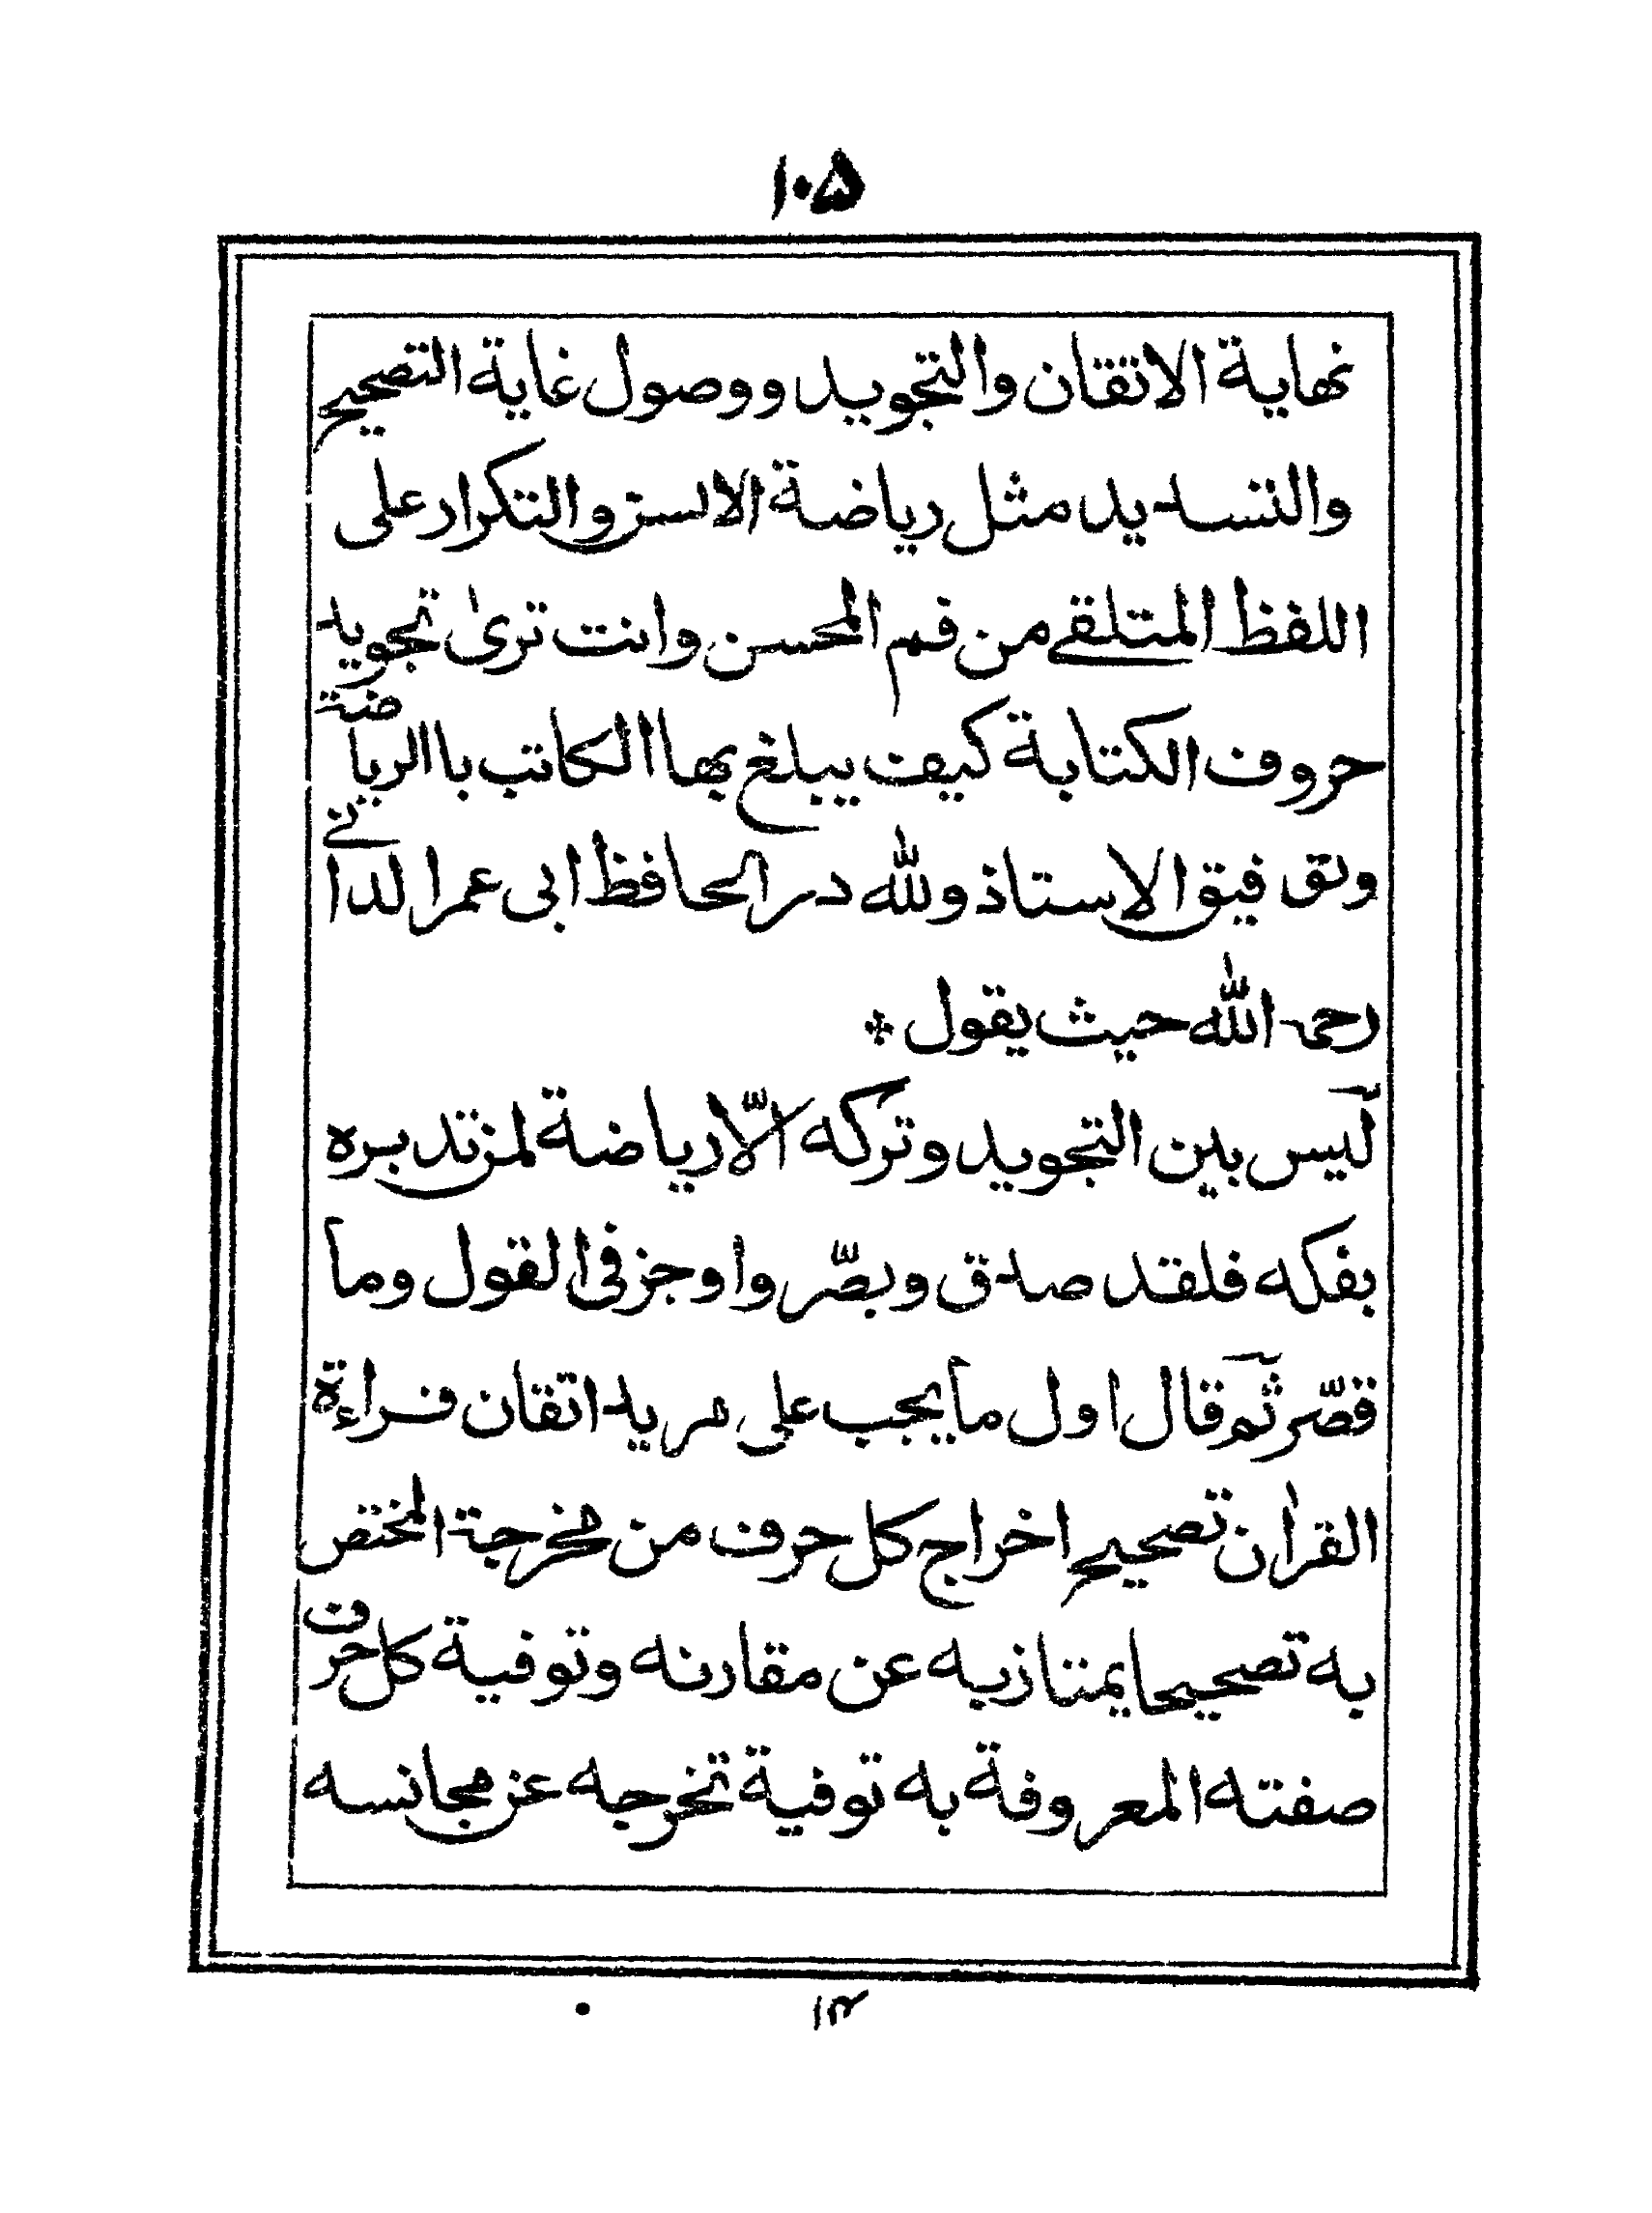 ١٠٥
نهاية الاتقان والتجويد ووصول غاية التصحيح
والتسديد مثل رياضة الالسن والتكرار على
اللفظ المتلقى من فم المحسن وانت ترىٰ تجويد
حروف الكتابة كيف يبلغ بها الكاتب باالرياضة
وتوقيف الاستاذ ولله در الحافظ ابى عمر الدانى
رحمه الله حيث يقول
ليس بين التجويد وتركه الّا رياضة لمن تدبره
بفكه فلقد صدق وبصّر واوجز فى القول وما
قصّر ثم قال اول ما يجب على مريد اتقان قراءة
القراٰن تصحيح اخراج كل حرف من مخرجة المختص
به تصحيحا يمتاز به عن مقارنه وتوفية كل حرف
صفته المعروفة به توفية تخرجه عن مجانسه